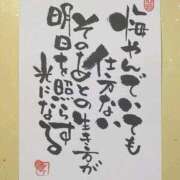 悔やんでいても
仕方ない
そのあとの生き方が
明日を照らする
光になる